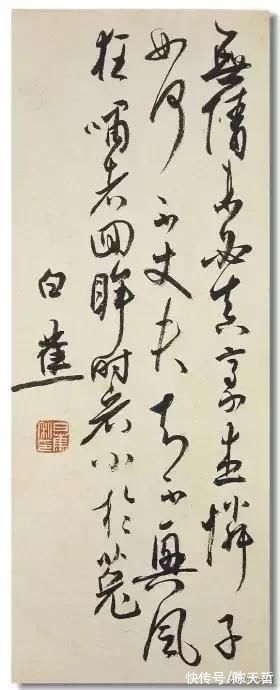 無情未必真豪杰憐子
如何不丈夫知否興風
狂嘯者回眸時看小於菟
白蕉
快传号/陈天哲